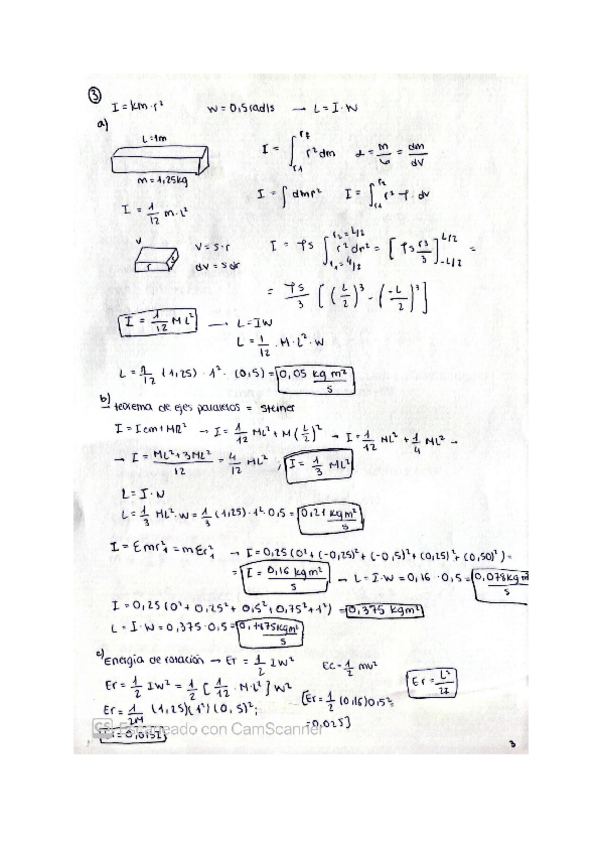 ③
I = km·r²   W = 0,5 rad/s → L = I·W
a)
L=1m
m = 1,25kg
I = ∫ r1 r2 r² dm   d = m/v = dm/dV
I = ∫ dm r²   I = ∫ r1 r2 r² · φ · dv
I = 1/12 m·L²
V   r   V = s·r
dV = s dr
I = φs ∫ r1 = 4/2 r2 = L/2 r² dr² = [φs r³/3] L/2 -L/2 =
= φs/3 [(L/2)³ - (-L/2)³]
I = 1/12 ML² → L = IW
L = 1/12 · M·L²·W
L = 1/12 (1,25) · 1² · (0,5) = 0,05 kg m²/s
b)
→ teorema de ejes paralelos = Steiner
I = Icm + MR² → I = 1/12 ML² + M(L/2)² → I = 1/12 ML² + 1/4 ML² →
→ I = ML²+3ML²/12 = 4/12 ML² ; I = 1/3 ML²
L = I·W
L = 1/3 ML²·W = 1/3 (1,25)·1²·0,5 = 0,21 kg m²/s
I = Σmr²₁ = mΣr²₁ → I = 0,25 (0² + (-0,25)² + (-0,5)² + (0,25)² + (0,50)²) =
= I = 0,16 kg m²/s → L = I·W = 0,16 · 0,5 = 0,078 kg m/s
I = 0,25 (0² + 0,25² + 0,5² + 0,75² + 1²) = 0,375 kg m²
L = I·W = 0,375·0,5 = 0,1875 kg m²/s
c) Energía de rotación → Er = 1/2 IW²   Ec = 1/2 mv²   Er = L²/2I
Er = 1/2 IW² = 1/2 [1/12 · M·L²] W²
[Er = 1/2 (0,16) 0,5²;
Er = 1/24 (1,25)(1²)(0,5)²;
= 0,02J]
Escaneado con CamScanner
= 0,013J
3